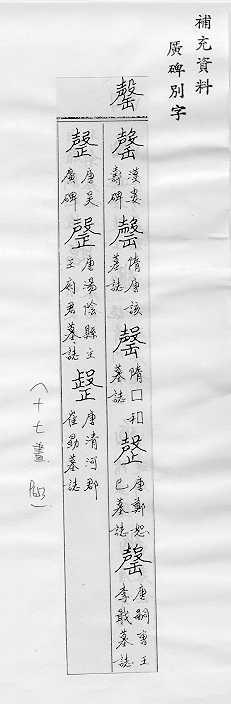 補充資料
廣碑別字
罄
罄 漢婁壽碑
罄 隋唐該墓誌
罄 隋口和墓誌
罄 唐鄭恕己墓誌
罄 唐嗣曹王李戢墓誌
罄 唐吳廣碑
罄 唐湯陰縣主王府君墓誌
唐清河郡崔勗墓誌
(十七畫